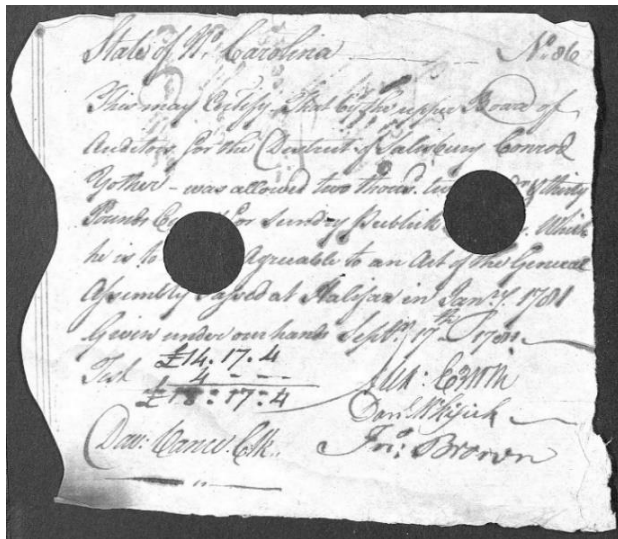 State of No. Carolina No. 86
This may Certify That by the upper Board of
Auditors for the District of Salisbury Conrod
Yother - was allowed two thous. & thirty
Pounds for Sundry Publick Which
he is to Agreeable to an Act of the General
Assembly Passed at Halifax in Jany. 1781
Given under our hands Septr. 17th 1781
Test £14.17.4
4 - -
£18:17:4
Dav: Vance Clk.
Danl. McKisick
Jno: Brown